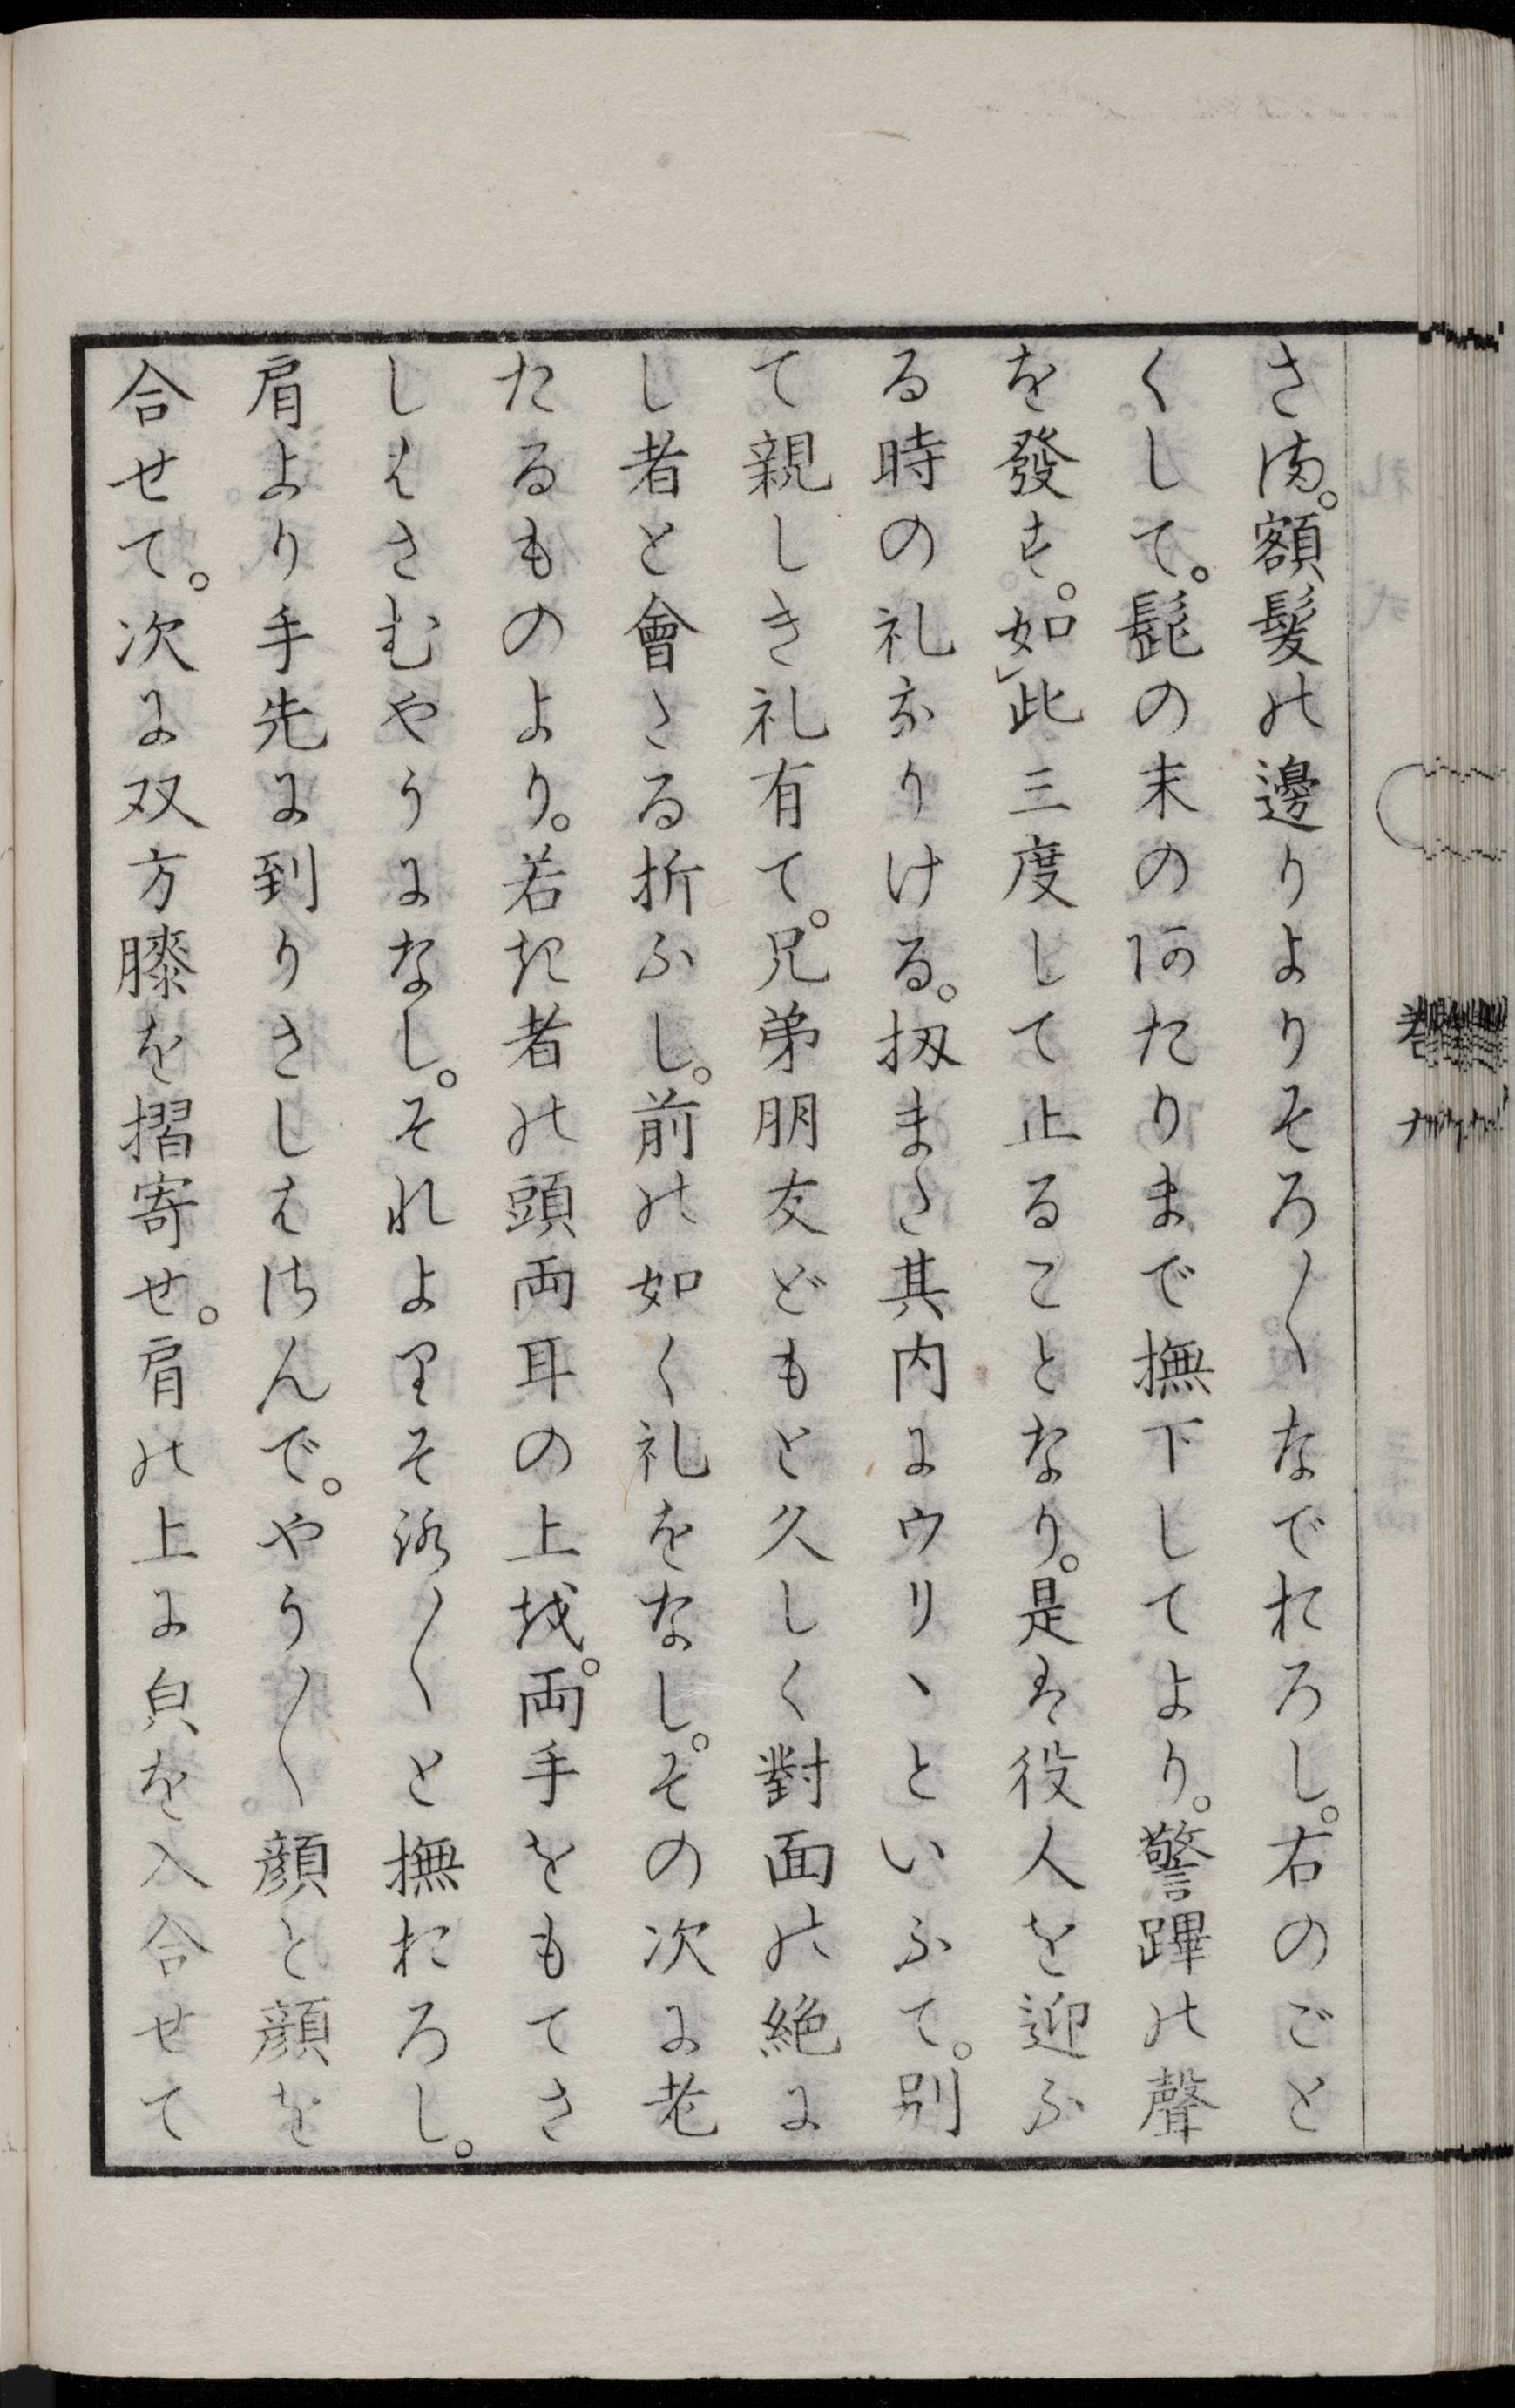 さま。額髪の邊りよりそろ〳〵なでおろし。右のごと
くして。髭の末のあたりまで撫下してより。警蹕の聲
を發す。如此三度して止ることなり。是は役人を迎ふ
る時の礼なりける。扨また其内にウリヽといふて。別
て親しき礼有て。兄弟朋友どもと久しく對面の絶に
し者と會たる折ふし。前の如く礼をなし。その次に老
たるものより。若き者の頭両耳の上を。両手をもてさ
しはさむやうになし。それよりそろ〳〵と撫おろし。
肩より手先に到りさしはさんで。やう〳〵顔と顔を
合せて。次に双方膝を摺寄せ。肩の上に㒵を入合せて